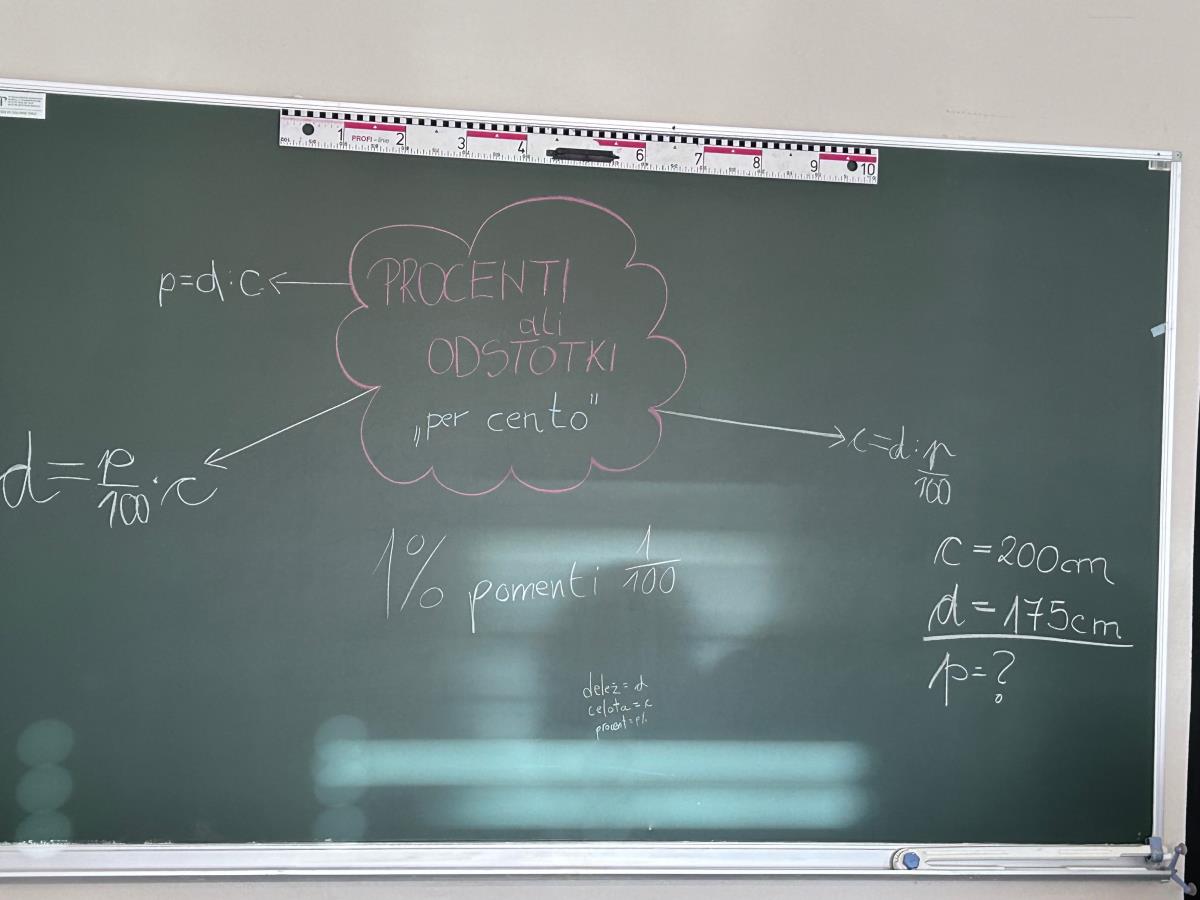 1 2 3 4 6 7 8 9 10
PROFI-line
PROCENTI
ali
ODSTOTKI
„per cento"
p=d:c
d=p/100·c
c=d:p/100
1% pomenti 1/100
c=200cm
d=175cm
p=?
delež=d
celota=c
procent=p%